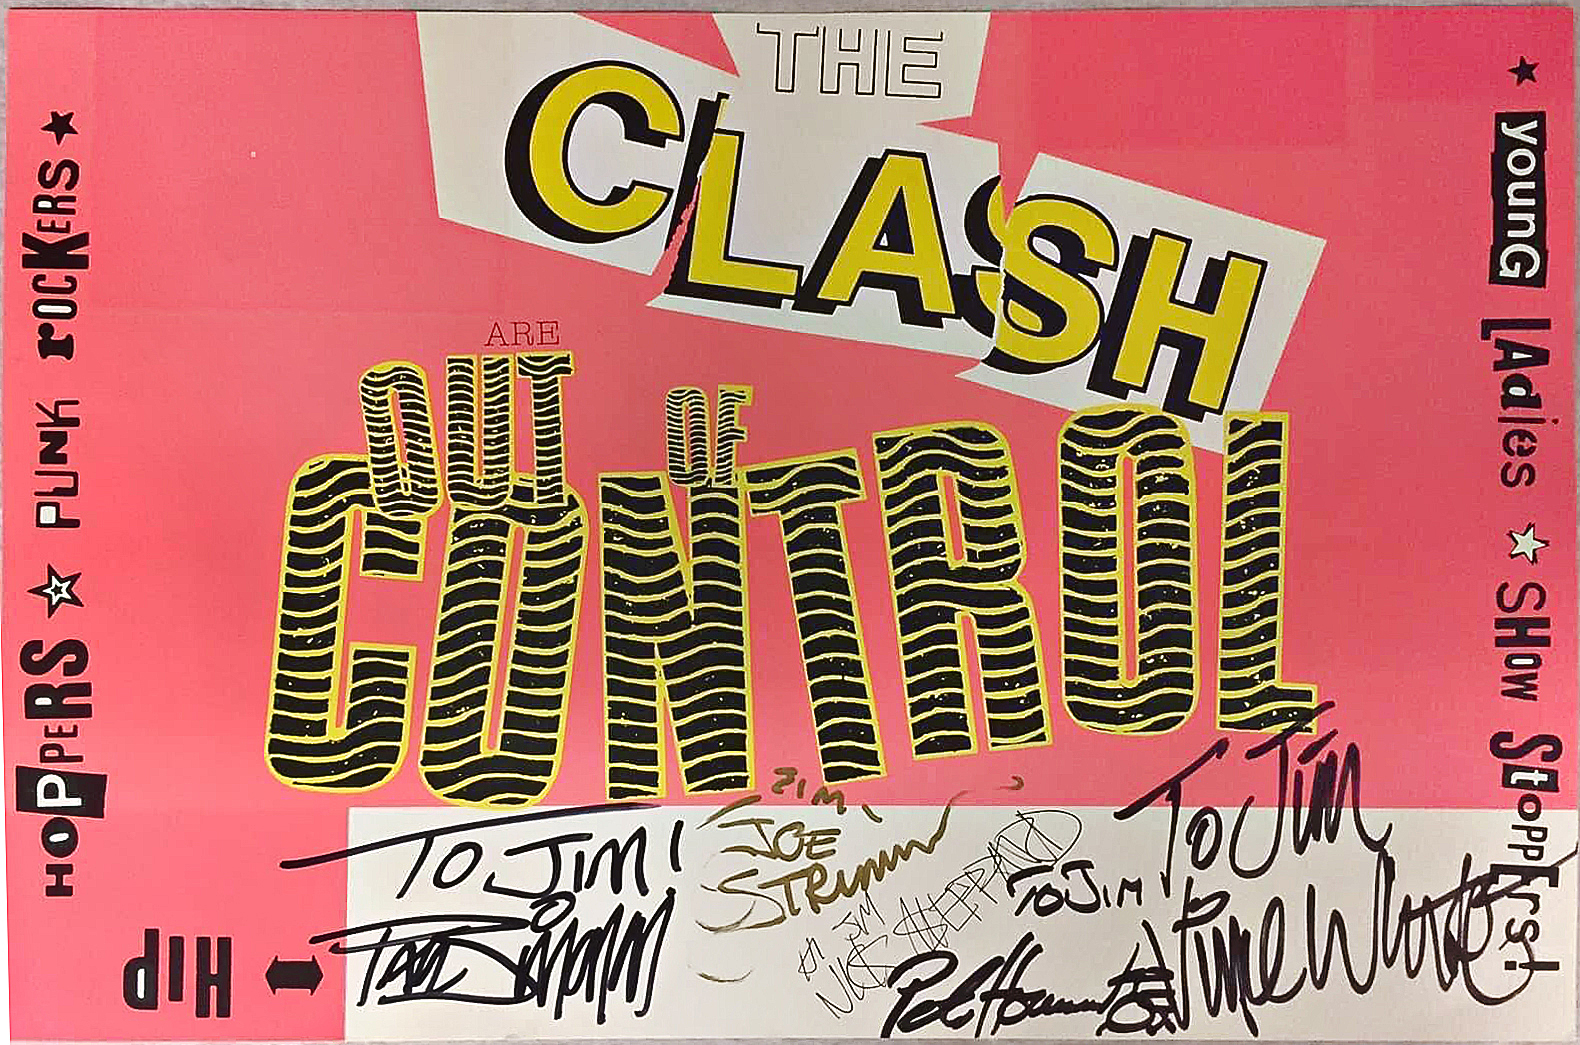 THE
CLASH
ARE
OUT OF
CONTROL
HIP
HOPPERS ★ PUNK rOCKERS ★
★ younG LAdies ☆ SHow StoppErs!
TO JIM!
Paul Simonon
JIM,
JOE
STRUMMER
HI JIM
NICK SHEPPARD
TO JIM
Pete Howard
To Jim